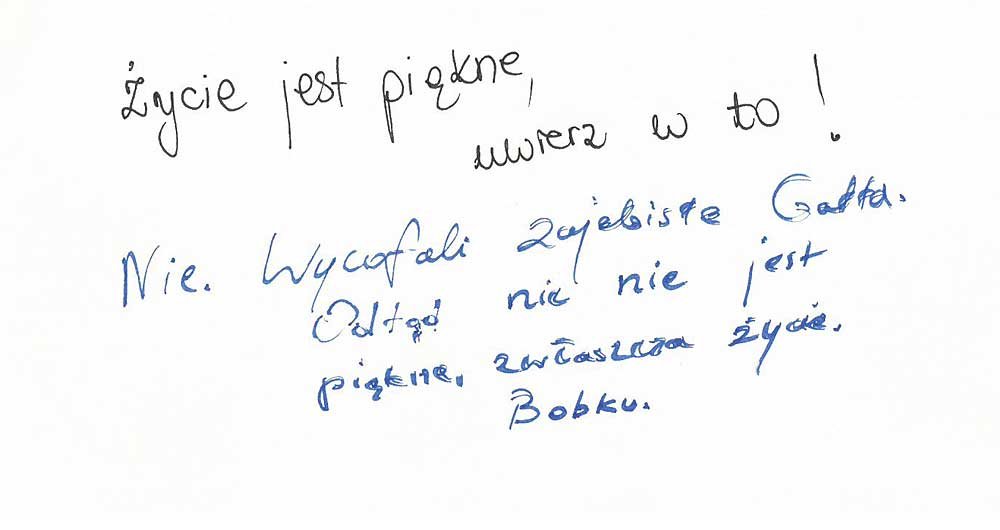 Życie jest piękne,
uwierz w to!
Nie. Wycofali zajebiste Gatta.
Odtąd nic nie jest
piękne, zwłaszcza życie.
Bobku.